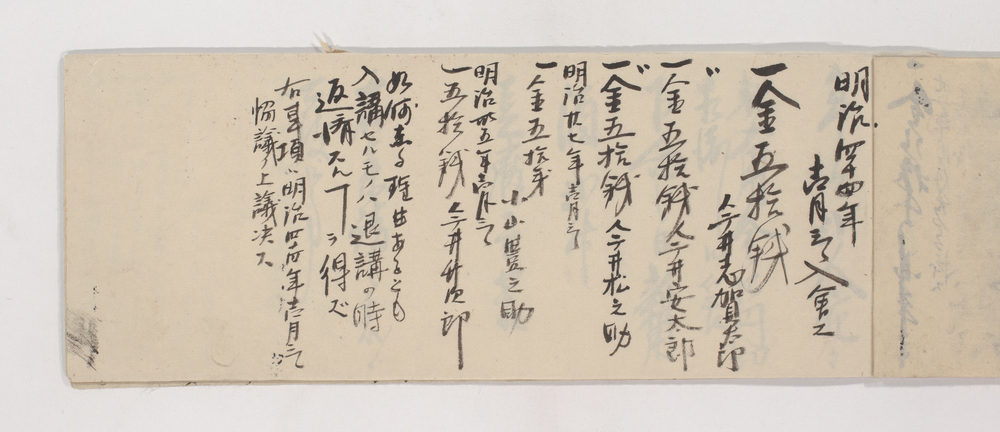 明治四十四年
壱月ニテ入会ス
一金五拾銭
今井志賀太郎
〃
一金五拾銭 今井安太郎
〃
一金五拾銭 今井松之助
明治廿七年壱月ニテ
一金五拾銭
小山豊之助
明治卅五年壱月ニテ
一五拾銭 今井竹次郎
如何なる理由あるとも
入講セルモノハ退講の時
返済スルヿヲ得ズ
右事項ハ明治四四年壱月ニテ
協議ノ上議决ス